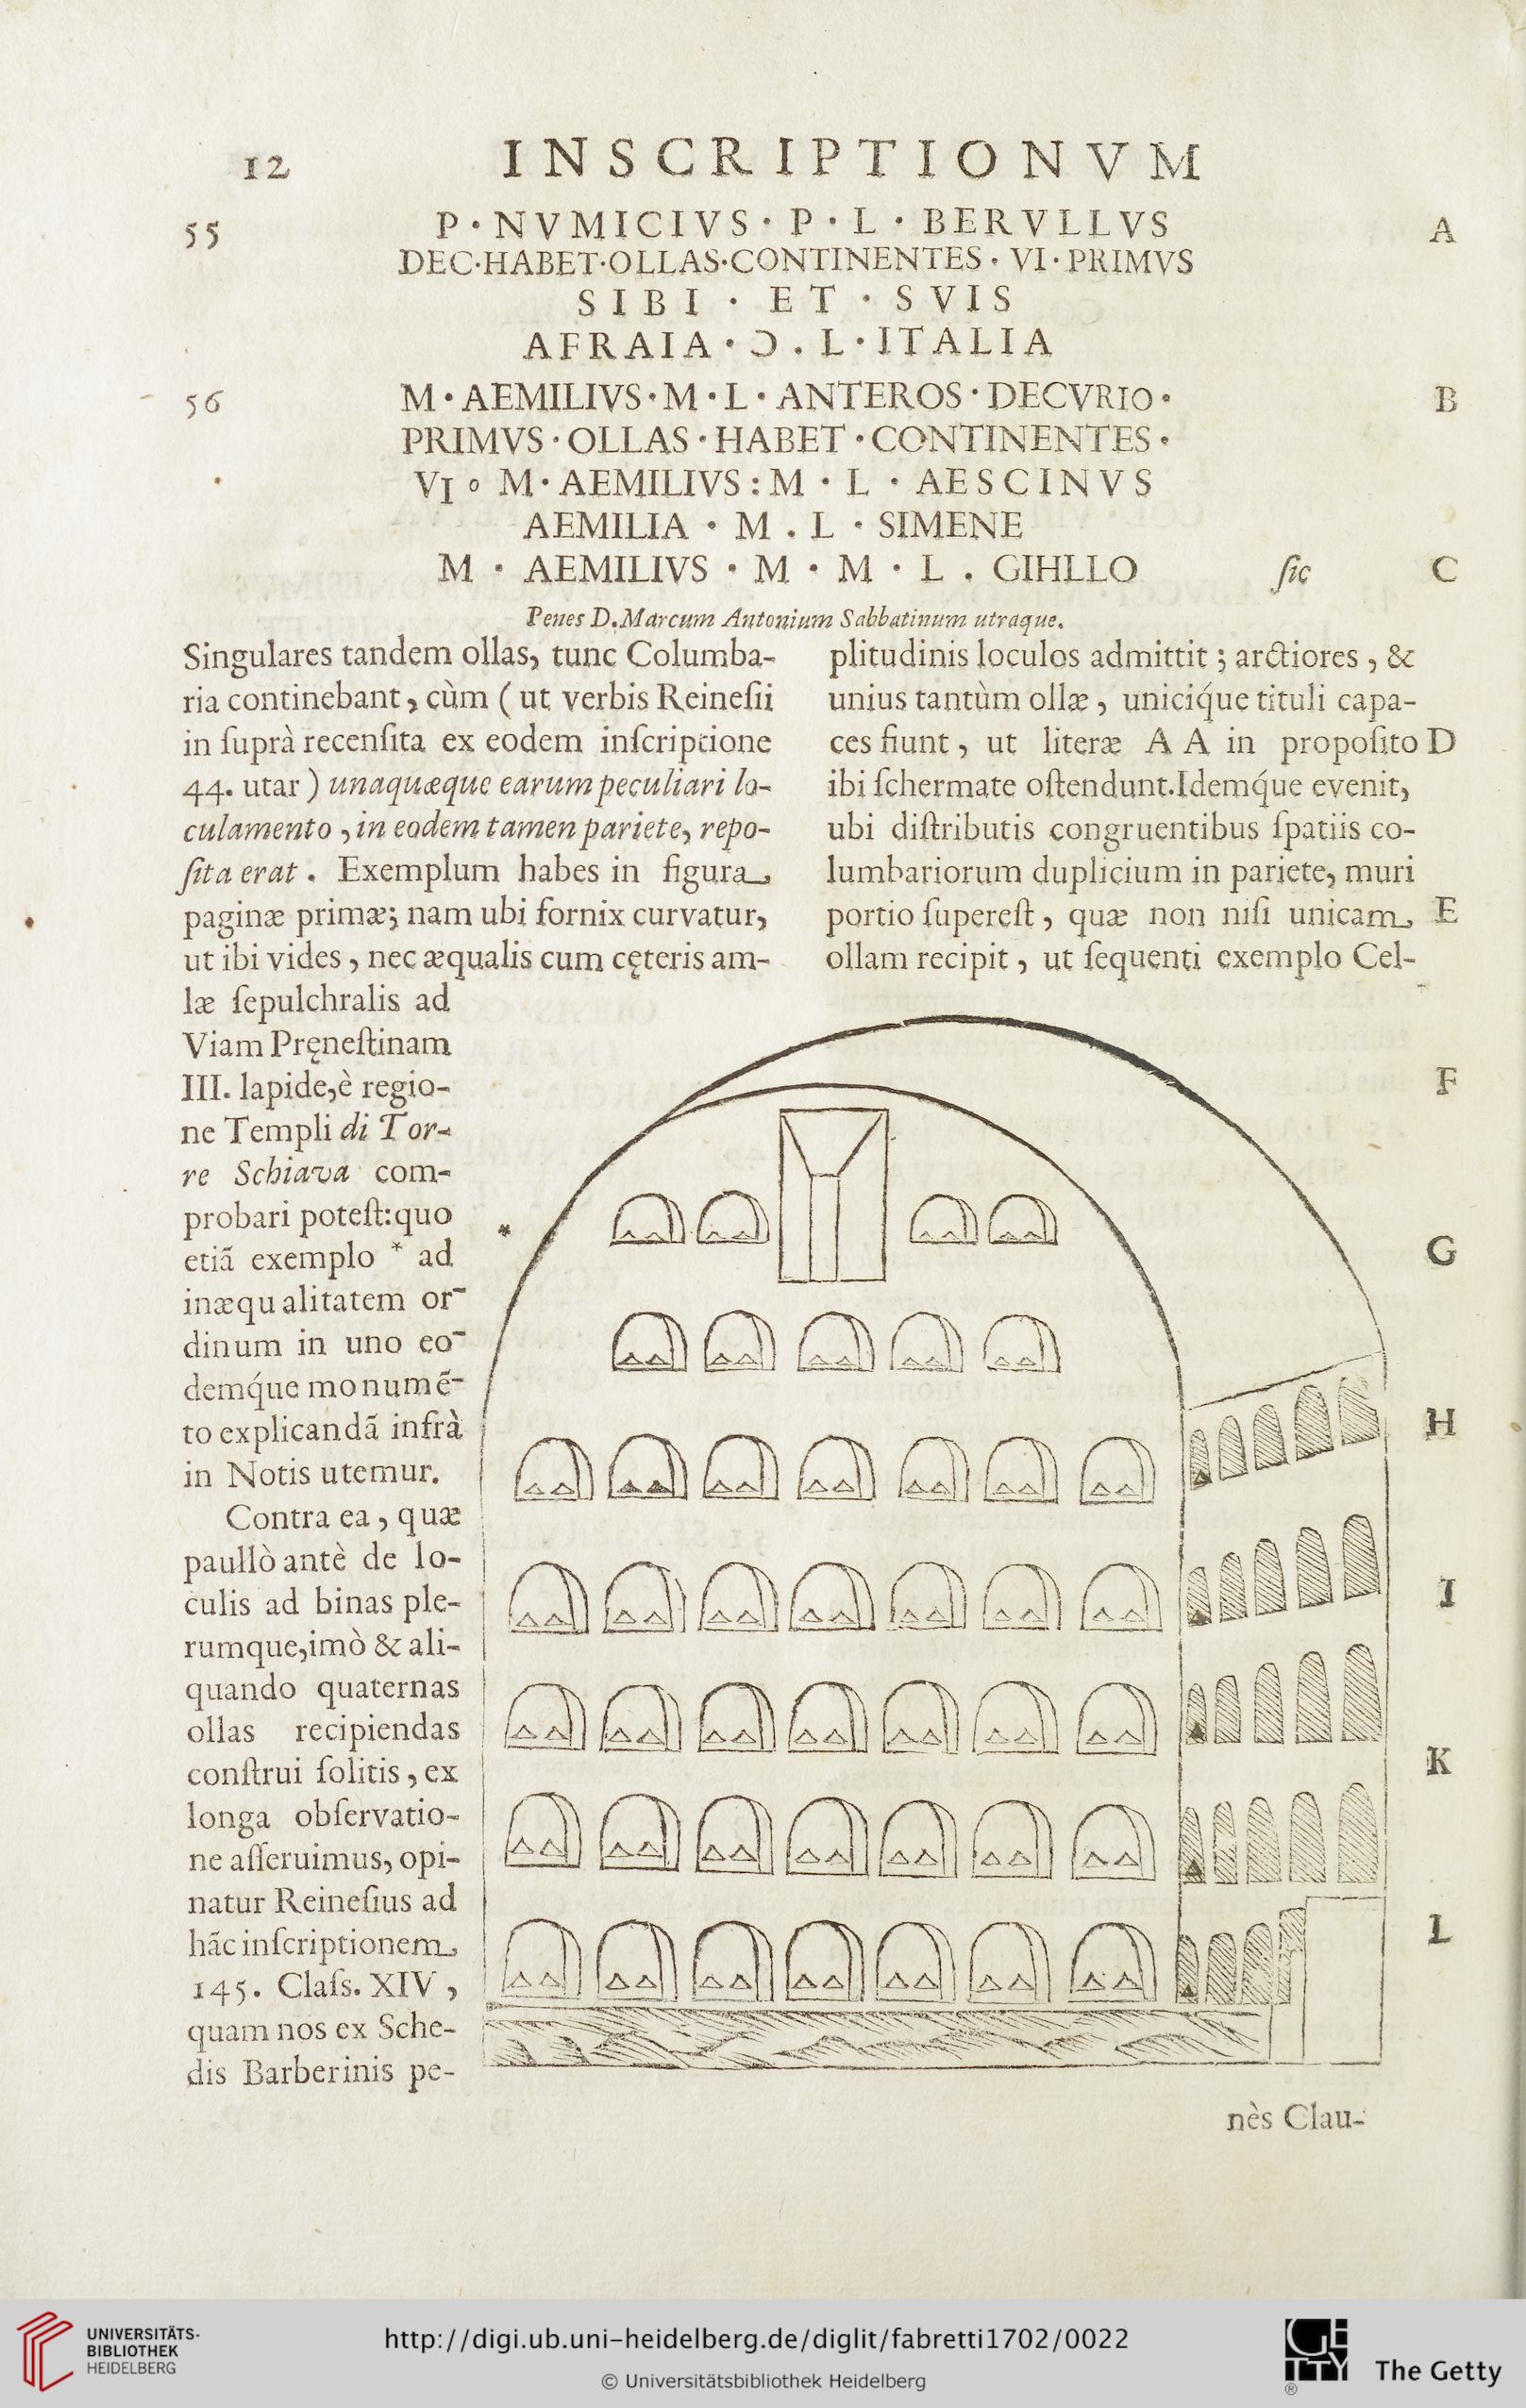 12 INSCRIPTIONVM
55 P · NVMICIVS · P · L · BERVLLVS A
DEC·HABET·OLLAS·CONTINENTES · VI · PRIMVS
SIBI · ET · SVIS
AFRAIA · Ɔ . L · ITALIA
56 M · AEMILIVS · M · L · ANTEROS · DECVRIO · B
PRIMVS · OLLAS · HABET · CONTINENTES ·
VI o M · AEMILIVS : M · L · AESCINVS
AEMILIA · M . L · SIMENE
M · AEMILIVS · M · M · L . GIHLLO ſic C
Penes D. Marcum Antonium Sabbatinum utraque.
Singulares tandem ollas, tunc Columba-
ria continebant, cùm ( ut verbis Reineſii
in ſuprà recenſita ex eodem inſcriptione
44. utar ) unaquæque earum peculiari lo-
culamento , in eodem tamen pariete, repo-
ſita erat . Exemplum habes in figura
paginæ primæ; nam ubi fornix curvatur,
ut ibi vides , nec æqualis cum cęteris am-
plitudinis loculos admittit ; arctiores , &
unius tantùm ollæ , uniciq́ue tituli capa-
ces fiunt , ut literæ A A in propoſito D
ibi ſchermate oſtendunt. Idemq́ue evenit,
ubi diſtributis congruentibus ſpatiis co-
lumbariorum duplicium in pariete, muri
portio ſupereſt , quæ non niſi unicam E
ollam recipit , ut ſequenti exemplo Cel-
læ ſepulchralis ad
Viam Pręneſtinam
III. lapide,è regio- F
ne Templi di Tor-
re Schiava com-
probari poteſt:quo *
etiã exemplo * ad G
inæqualitatem or-
dinum in uno eo-
demq́ue monumẽ-
to explicandã infrà H
in Notis utemur.
Contra ea , quæ
paullò antè de lo-
culis ad binas ple- I
rumque,imò & ali-
quando quaternas
ollas recipiendas
conſtrui ſolitis , ex K
longa obſervatio-
ne aſſeruimus, opi-
natur Reineſius ad
hãc inſcriptionem L
145. Claſs. XIV ,
quam nos ex Sche-
dis Barberinis pe-
nès Clau-
UNIVERSITÄTS-
BIBLIOTHEK
HEIDELBERG
http://digi.ub.uni-heidelberg.de/diglit/fabretti1702/0022
© Universitätsbibliothek Heidelberg
GETTY
®
The Getty